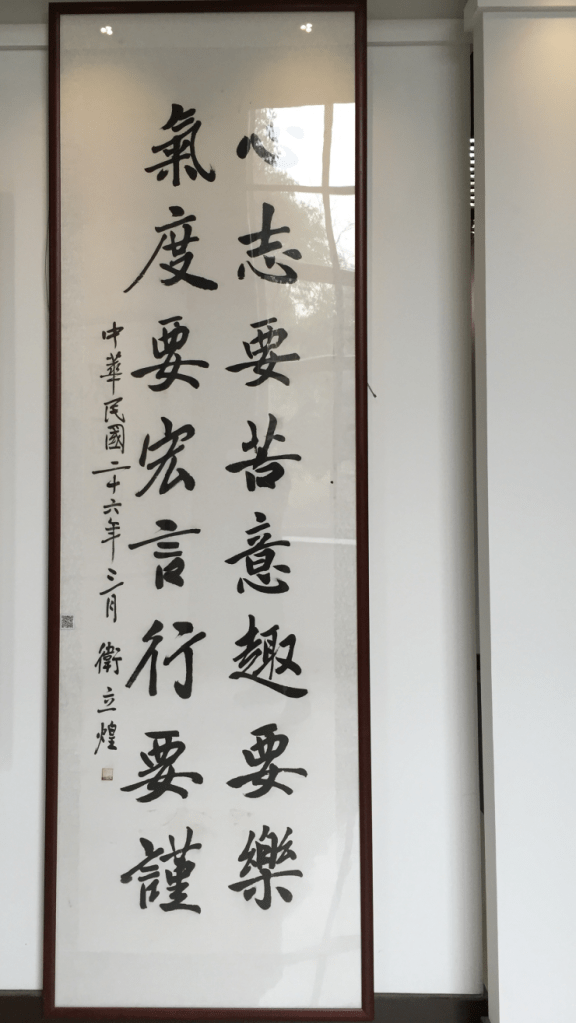 心志要苦意趣要樂
氣度要宏言行要謹
中華民國二十六年三月 衛立煌